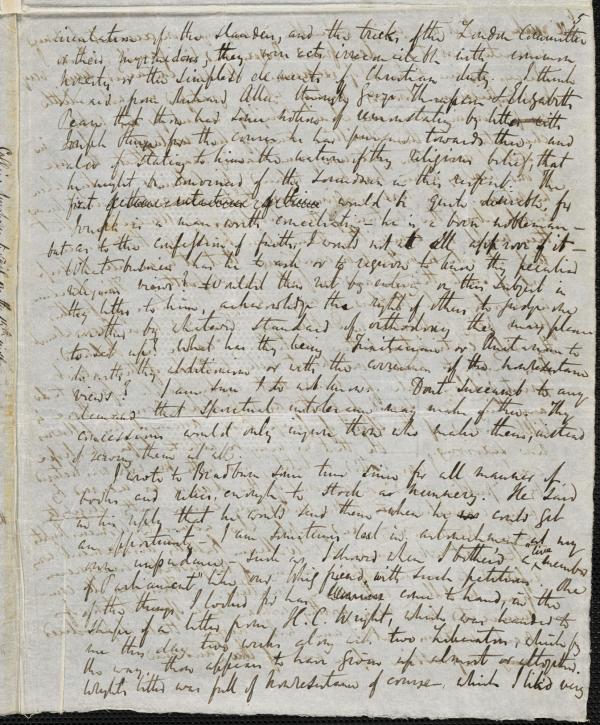 5
circulation for the slanders, and the tricks of the London Committee
or their myrmidons, they were acts irreconcileable with common
honesty or the simplest elements of Christian duty. I think
said from Richard Allen through George Thompson & Elizabeth
Pease that thou had some notion of remonstrating by letter with
Joseph Sturge for the course he has pursued towards thee, and
also of stating to him the nature of thy religious belief, that
he might be convinced of thy soundness in this respect. The
first would be quite desirable, for
Sturge is a man worth conciliating - he is a born nobleman -
but as to the confession of faith, I would not at all approve of it -
What business has he to ask or to require to know thy peculiar
religious views? Wouldst thou not by entering on this subject in
thy letter to him, acknowledge the right of others to judge one
another by whatever standard of orthodoxy they may please
to set up? What has thy being Trinitarian or Unitarian to
do with thy abolitionism or with the correctness of thy nonresistance
views? I am sure I do not know. Dont succumb to any
demand that spiritual intolerance may make of thee. Thy
concessions would only injure those who make them, instead
of serving them at all.
I wrote to Bradburn some time since for all manner of
books and relics, enough to stock a nunnery. He said
in his reply that he would send them when he could get
an opportunity. I am sometimes lost in astonishment at my
own impudence, such as I showed when I bothered a "live member
of Parliament" like our Whig friend, with such petitions. One
of the things I looked for has come to hand, in the
shape of a letter from H. C. Wright, which was handed to
me this day two weeks along with two Liberators, which by
the way thou appears to have given up almost or altogether.
Wright's letter was full of Nonresistance of course, which I liked very